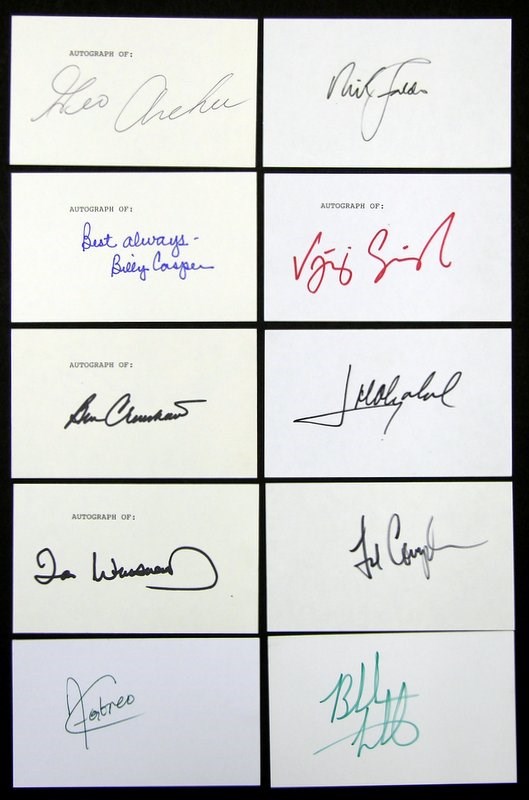 AUTOGRAPH OF:
Geo Archer
Nick Faldo
AUTOGRAPH OF:
Best always -
Billy Casper
AUTOGRAPH OF:
Vijay Singh
AUTOGRAPH OF:
Ben Crenshaw
AUTOGRAPH OF:
Tom Weiskopf
Fred Couples